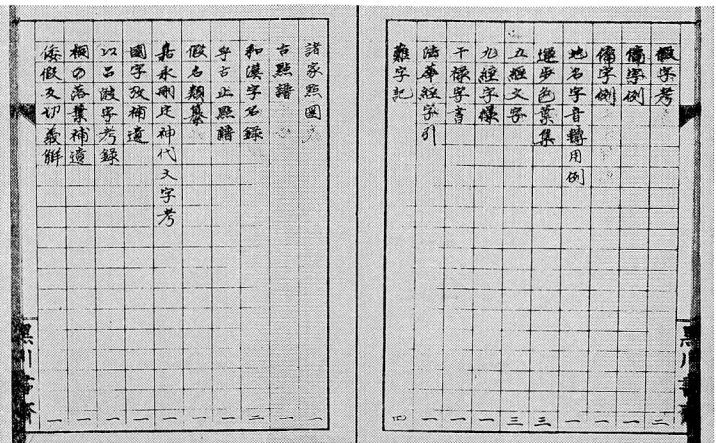 假字考 二
備字例 一
備字例 一
地名字音轉用例 一
運歩色葉集 三
五經文字 三
九經字樣 一
干禄字書 一
法華經字引 一
難字記 四
諸家點圖 一
古點譜 一
和漢字名録 二
乎古止點譜 一
假名類纂 一
嘉永刪定神代文字考 一
國字攷補遺 一
以呂波字考録 一
桐の落葉補遺 一
倭假反切義解 一
黒川書齋
黒川書齋